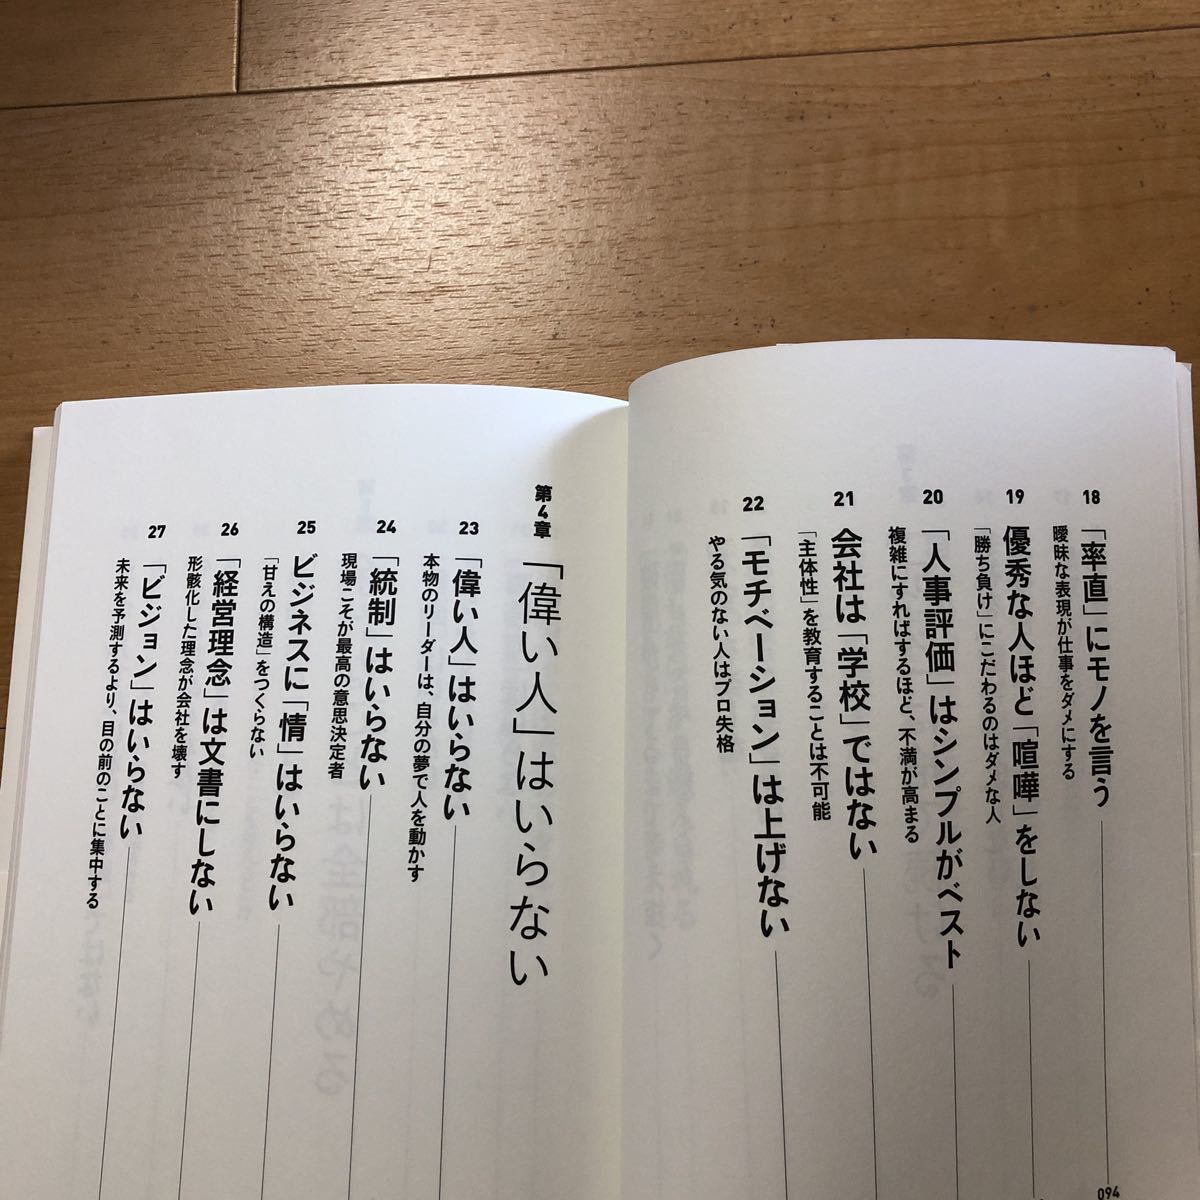 18
「率直」にモノを言う
曖昧な表現が仕事をダメにする
094
19
優秀な人ほど「喧嘩」をしない
「勝ち負け」にこだわるのはダメな人
20
「人事評価」はシンプルがベスト
複雑にすればするほど、不満が高まる
21
会社は「学校」ではない
「主体性」を教育することは不可能
22
「モチベーション」は上げない
やる気のない人はプロ失格
第4章
「偉い人」はいらない
23
「偉い人」はいらない
本物のリーダーは、自分の夢で人を動かす
24
「統制」はいらない
現場こそが最高の意思決定者
25
ビジネスに「情」はいらない
「甘えの構造」をつくらない
26
「経営理念」は文書にしない
形骸化した理念が会社を壊す
27
「ビジョン」はいらない
未来を予測するより、目の前のことに集中する